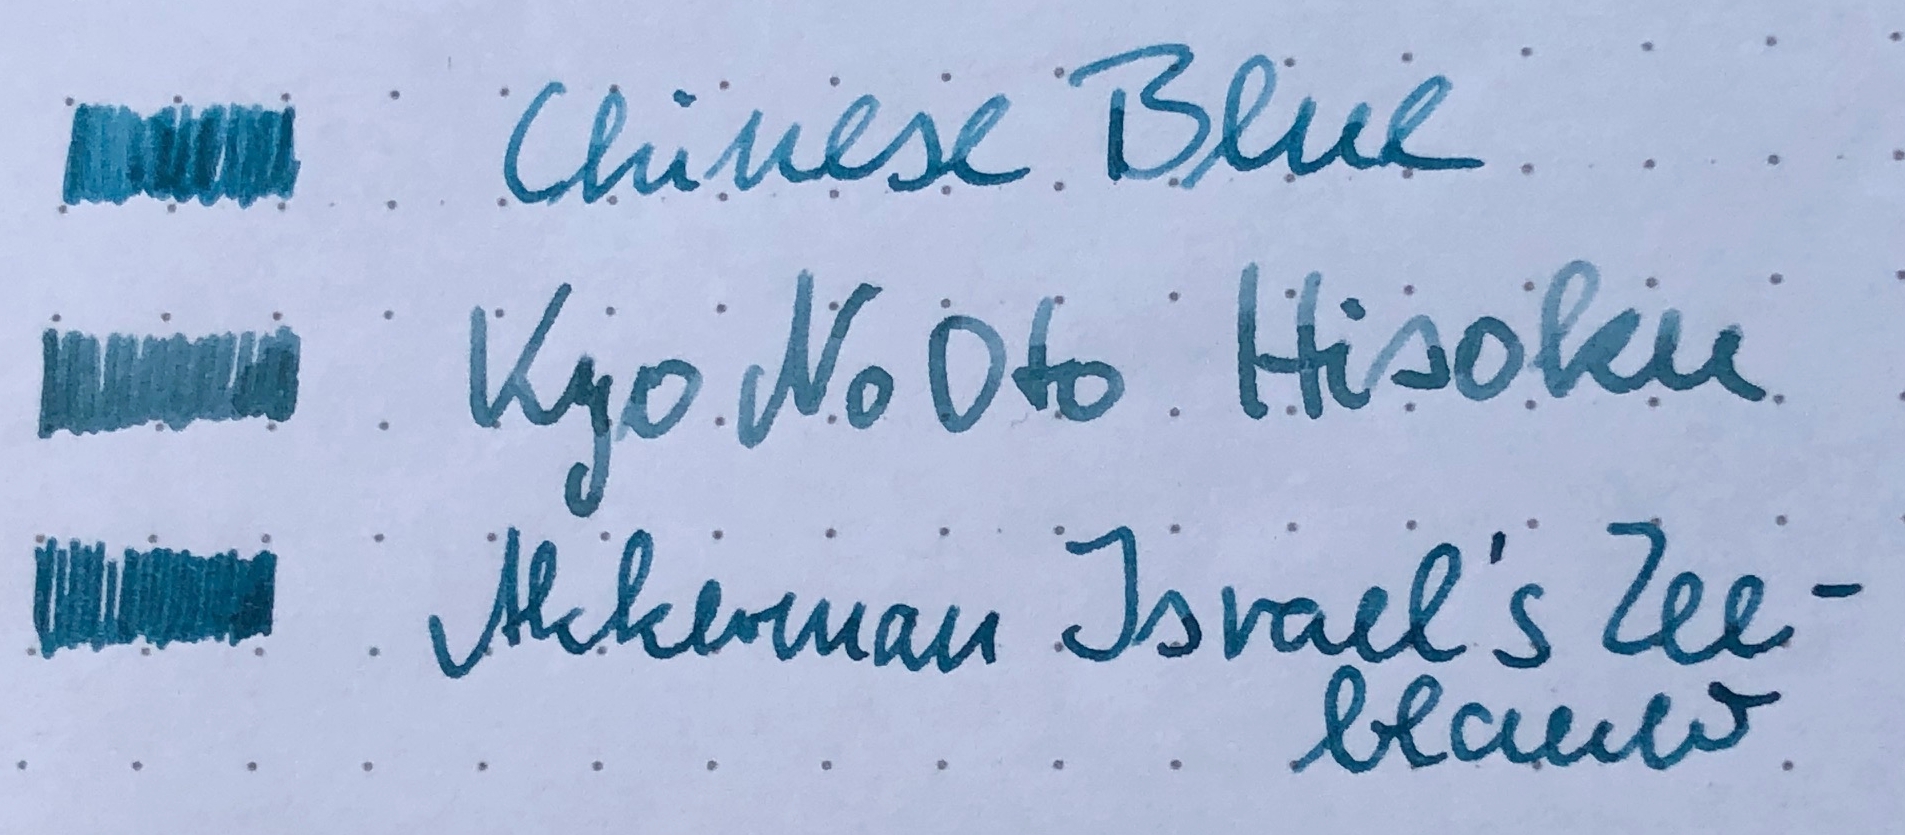 Chinese Blue
Kyo No Oto Hisoku
Akkerman Israel's Zee-
blauw